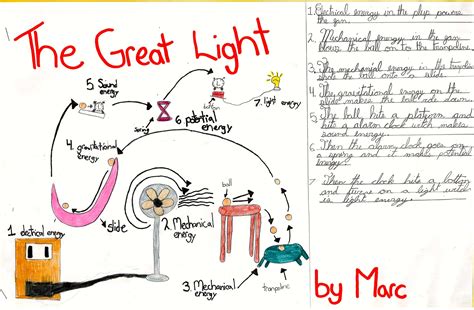 The Great Light
1. Electrical energy in the plug powers
the fan.
2. Mechanical energy in the fan
blows the ball on to the trampoline.
3. The mechanical energy in the
the ball onto a slide.
4. The gravitational energy on the
slide makes the ball
5. The ball hits a platform and
hits a alarm clock witch makes
sound energy.
6. Then the alarm clock goes on
a spring and it makes potential
energy.
7. Then the clock hits a
and on a light witch
is light energy.
5. Sound
energy
spring
6 potential
energy
button
7. light
energy
4. gravitational
energy
slide
1. electrical energy
2. Mechanical
energy
ball
3. Mechanical
energy
trampoline
by Marc